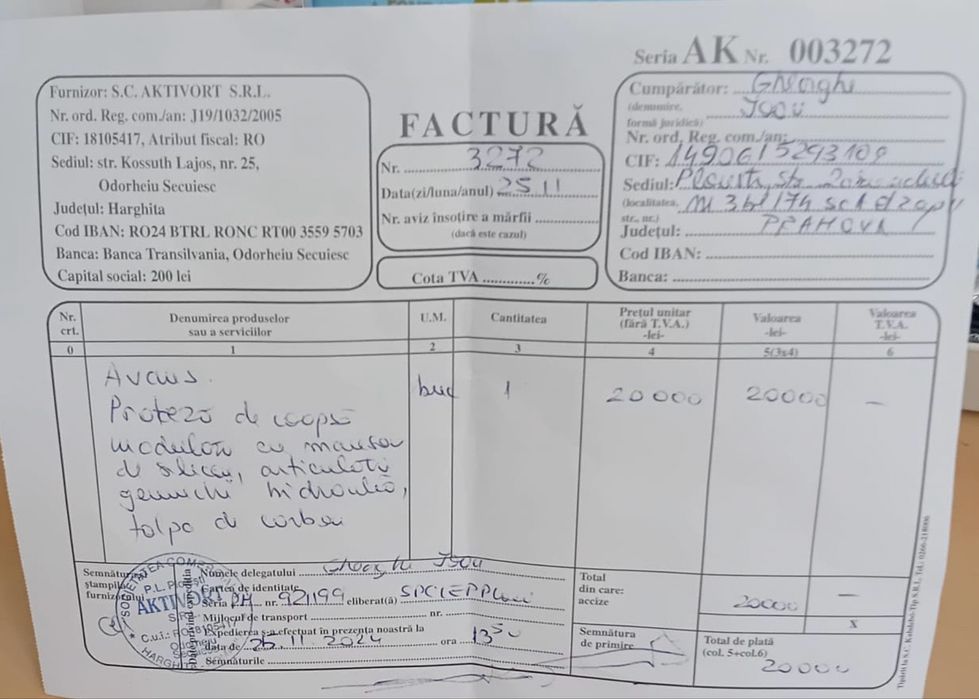 Seria AK Nr. 003272
Furnizor: S.C. AKTIVORT S.R.L.
Nr. ord. Reg. com./an: J19/1032/2005
CIF: 18105417, Atribut fiscal: RO
Sediul: str. Kossuth Lajos, nr. 25,
Odorheiu Secuiesc
Județul: Harghita
Cod IBAN: RO24 BTRL RONC RT00 3559 5703
Banca: Banca Transilvania, Odorheiu Secuiesc
Capital social: 200 lei
FACTURĂ
Nr. 3272
Data(zi/luna/anul) 25 11
Nr. aviz însoțire a mărfii
(dacă este cazul)
Cota TVA ............%
Cumpărător: Gheorghe
(denumire,
formă juridică)
Nr. ord. Reg. com./an:
CIF:
Sediul:
(localitatea,
str., nr.)
Județul: PRAHOVA
Cod IBAN:
Banca:
Nr. crt.
Denumirea produselor
sau a serviciilor
U.M.
Cantitatea
Prețul unitar
(fără T.V.A.)
-lei-
Valoarea
-lei-
Valoarea
T.V.A.
-lei-
0 1 2 3 4 5(3x4) 6
Avans. buc 1 20000 20000 –
Proteză de coapsă
modulară cu manșon
de silicon,
genunchi hidraulic,
talpa de carbon
Semnătura
ștampila
furnizorului
Numele delegatului Gheorghe
Cartea de identitate
Seria PH nr. 921199 eliberat(ă)
Mijlocul de transport nr.
Expedierea s-a efectuat în prezența noastră la
data de 25.11.2024 ora 13 50
Semnăturile
AKTIVORT
Total
din care:
accize
20000 –
X
Semnătura
de primire
Total de plată
(col. 5+col.6)
20000